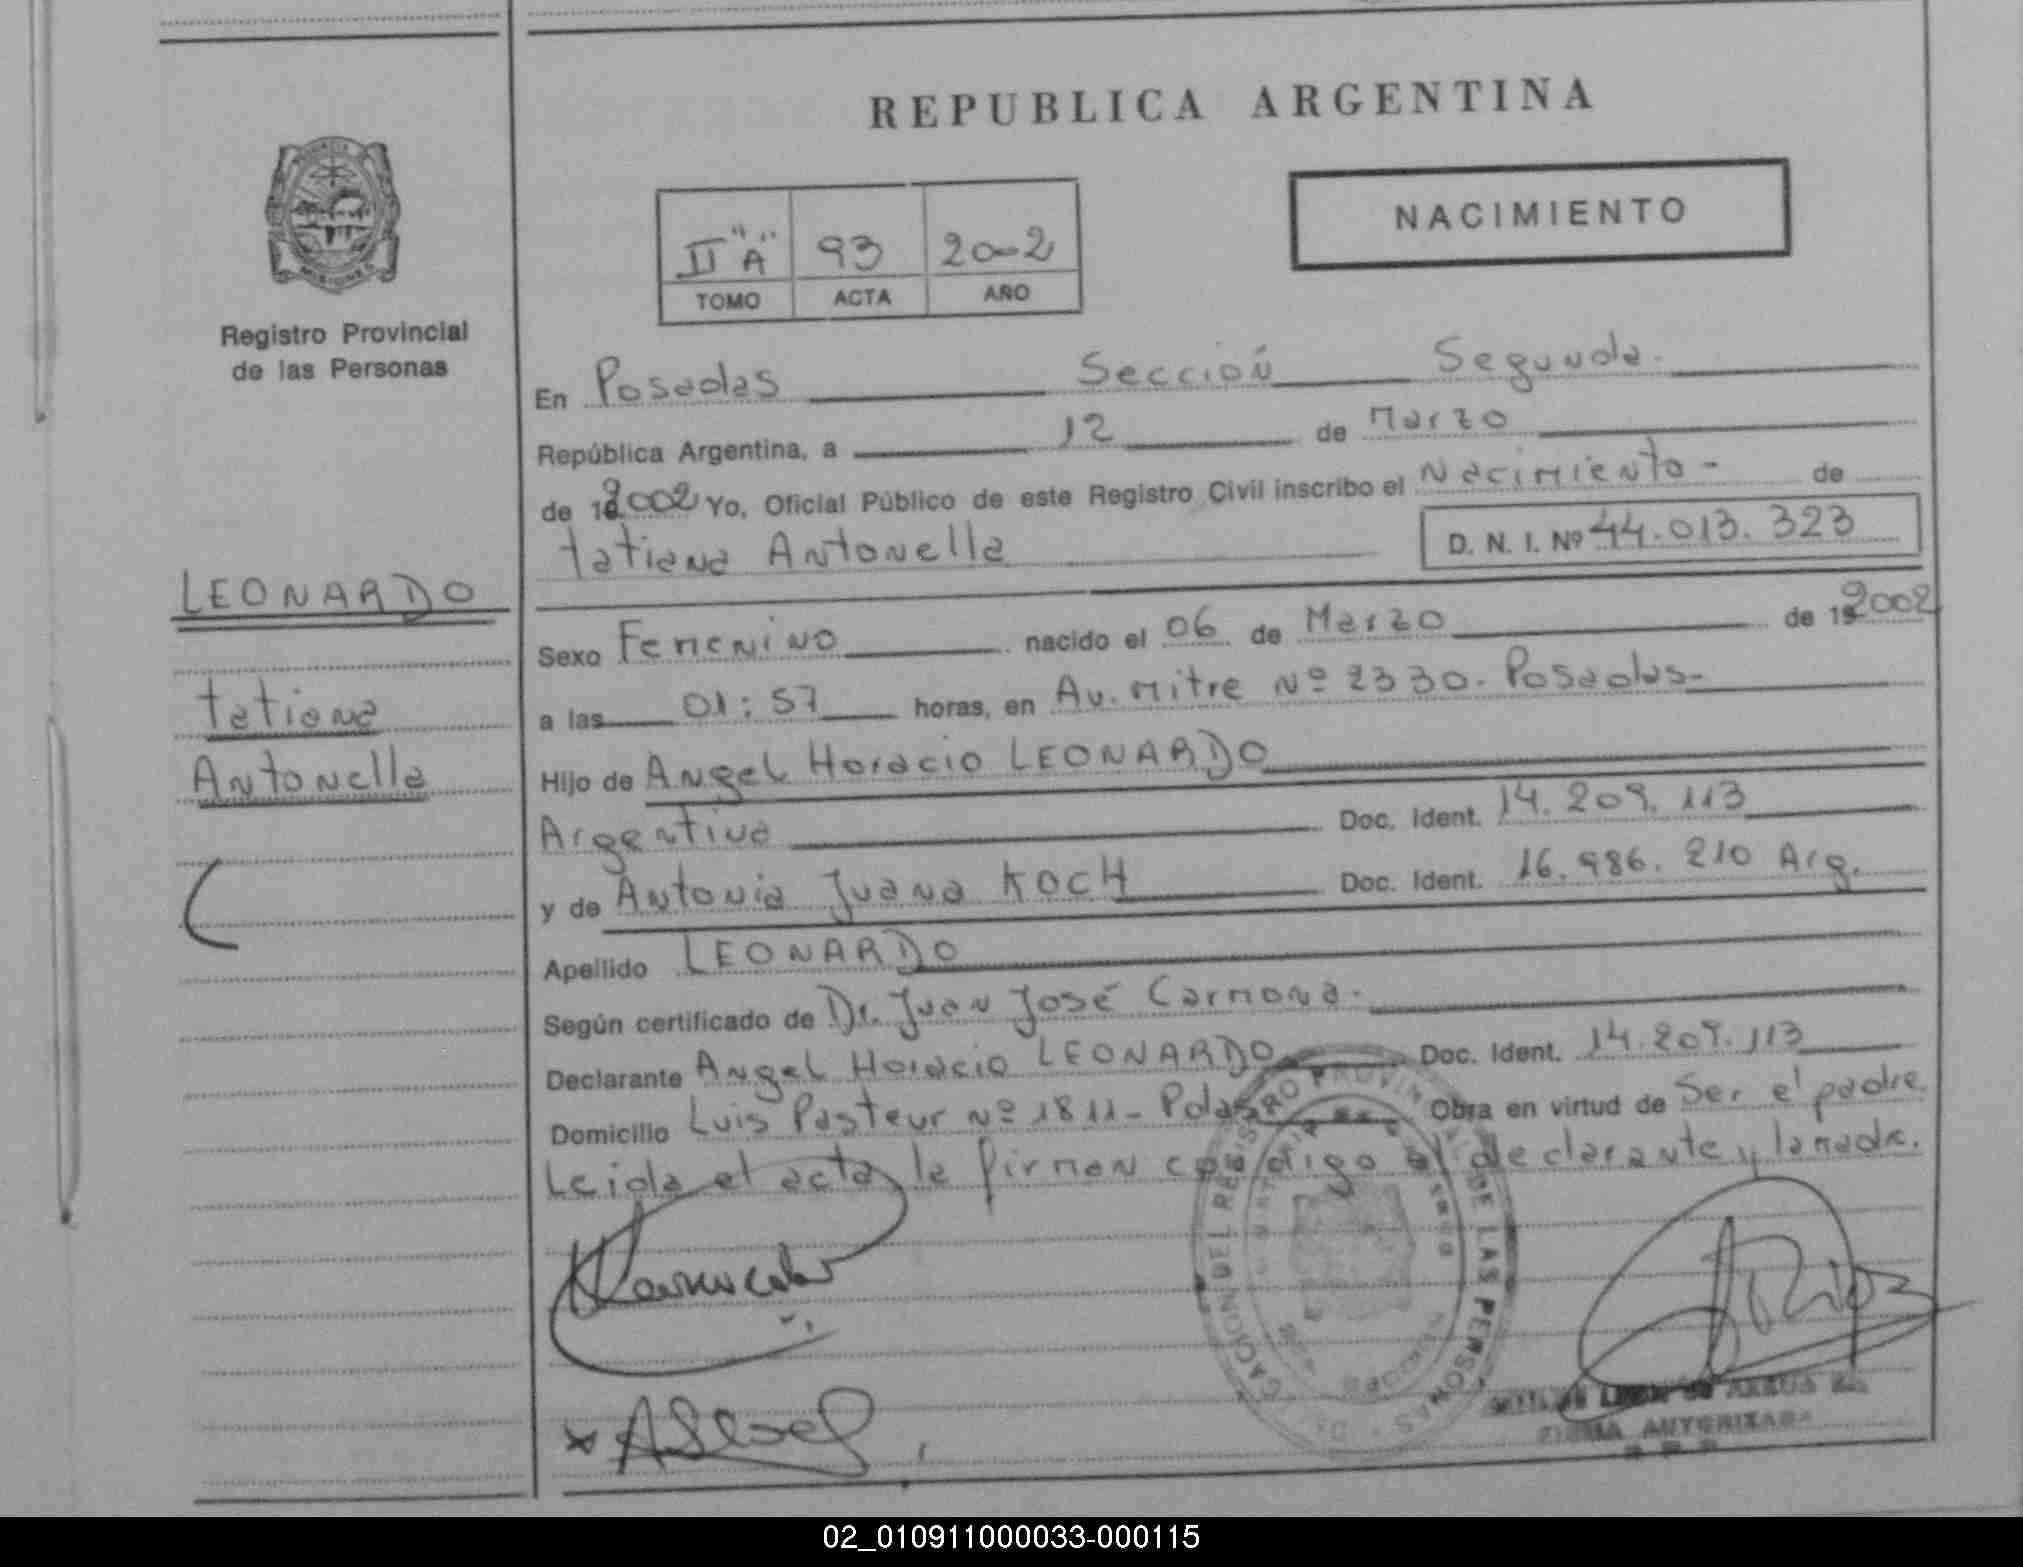 REPUBLICA ARGENTINA
NACIMIENTO
II "A" 93 2002
TOMO ACTA AÑO
Registro Provincial
de las Personas
En Posadas Sección Segunda.
República Argentina, a 12 de Marzo
de 2002 Yo, Oficial Público de este Registro Civil inscribo el Nacimiento - de
tatiana Antonella D. N. I. Nº 44.013.323
LEONARDO
tatiana
Antonella
Sexo Femenino nacido el 06 de Marzo de 2002
a las 01:57 horas, en Av. Mitre Nº 2330. Posadas-
Hijo de Angel Horacio LEONARDO
Argentina Doc. Ident. 14.209.113
y de Antonia Juana KOCH Doc. Ident. 16.986.210 Arg.
Apellido LEONARDO
Según certificado de Dr. Juan José Carmona.
Declarante Angel Horacio LEONARDO Doc. Ident. 14.209.113
Domicilio Luis Pasteur Nº 1811- Pdas Obra en virtud de Ser el padre.
Leida el acta la firman conmigo el declarante y la madre.
DEL REGISTRO PROVINCIAL DE LAS PERSONAS
FIRMA AUTORIZADA
02_010911000033-000115